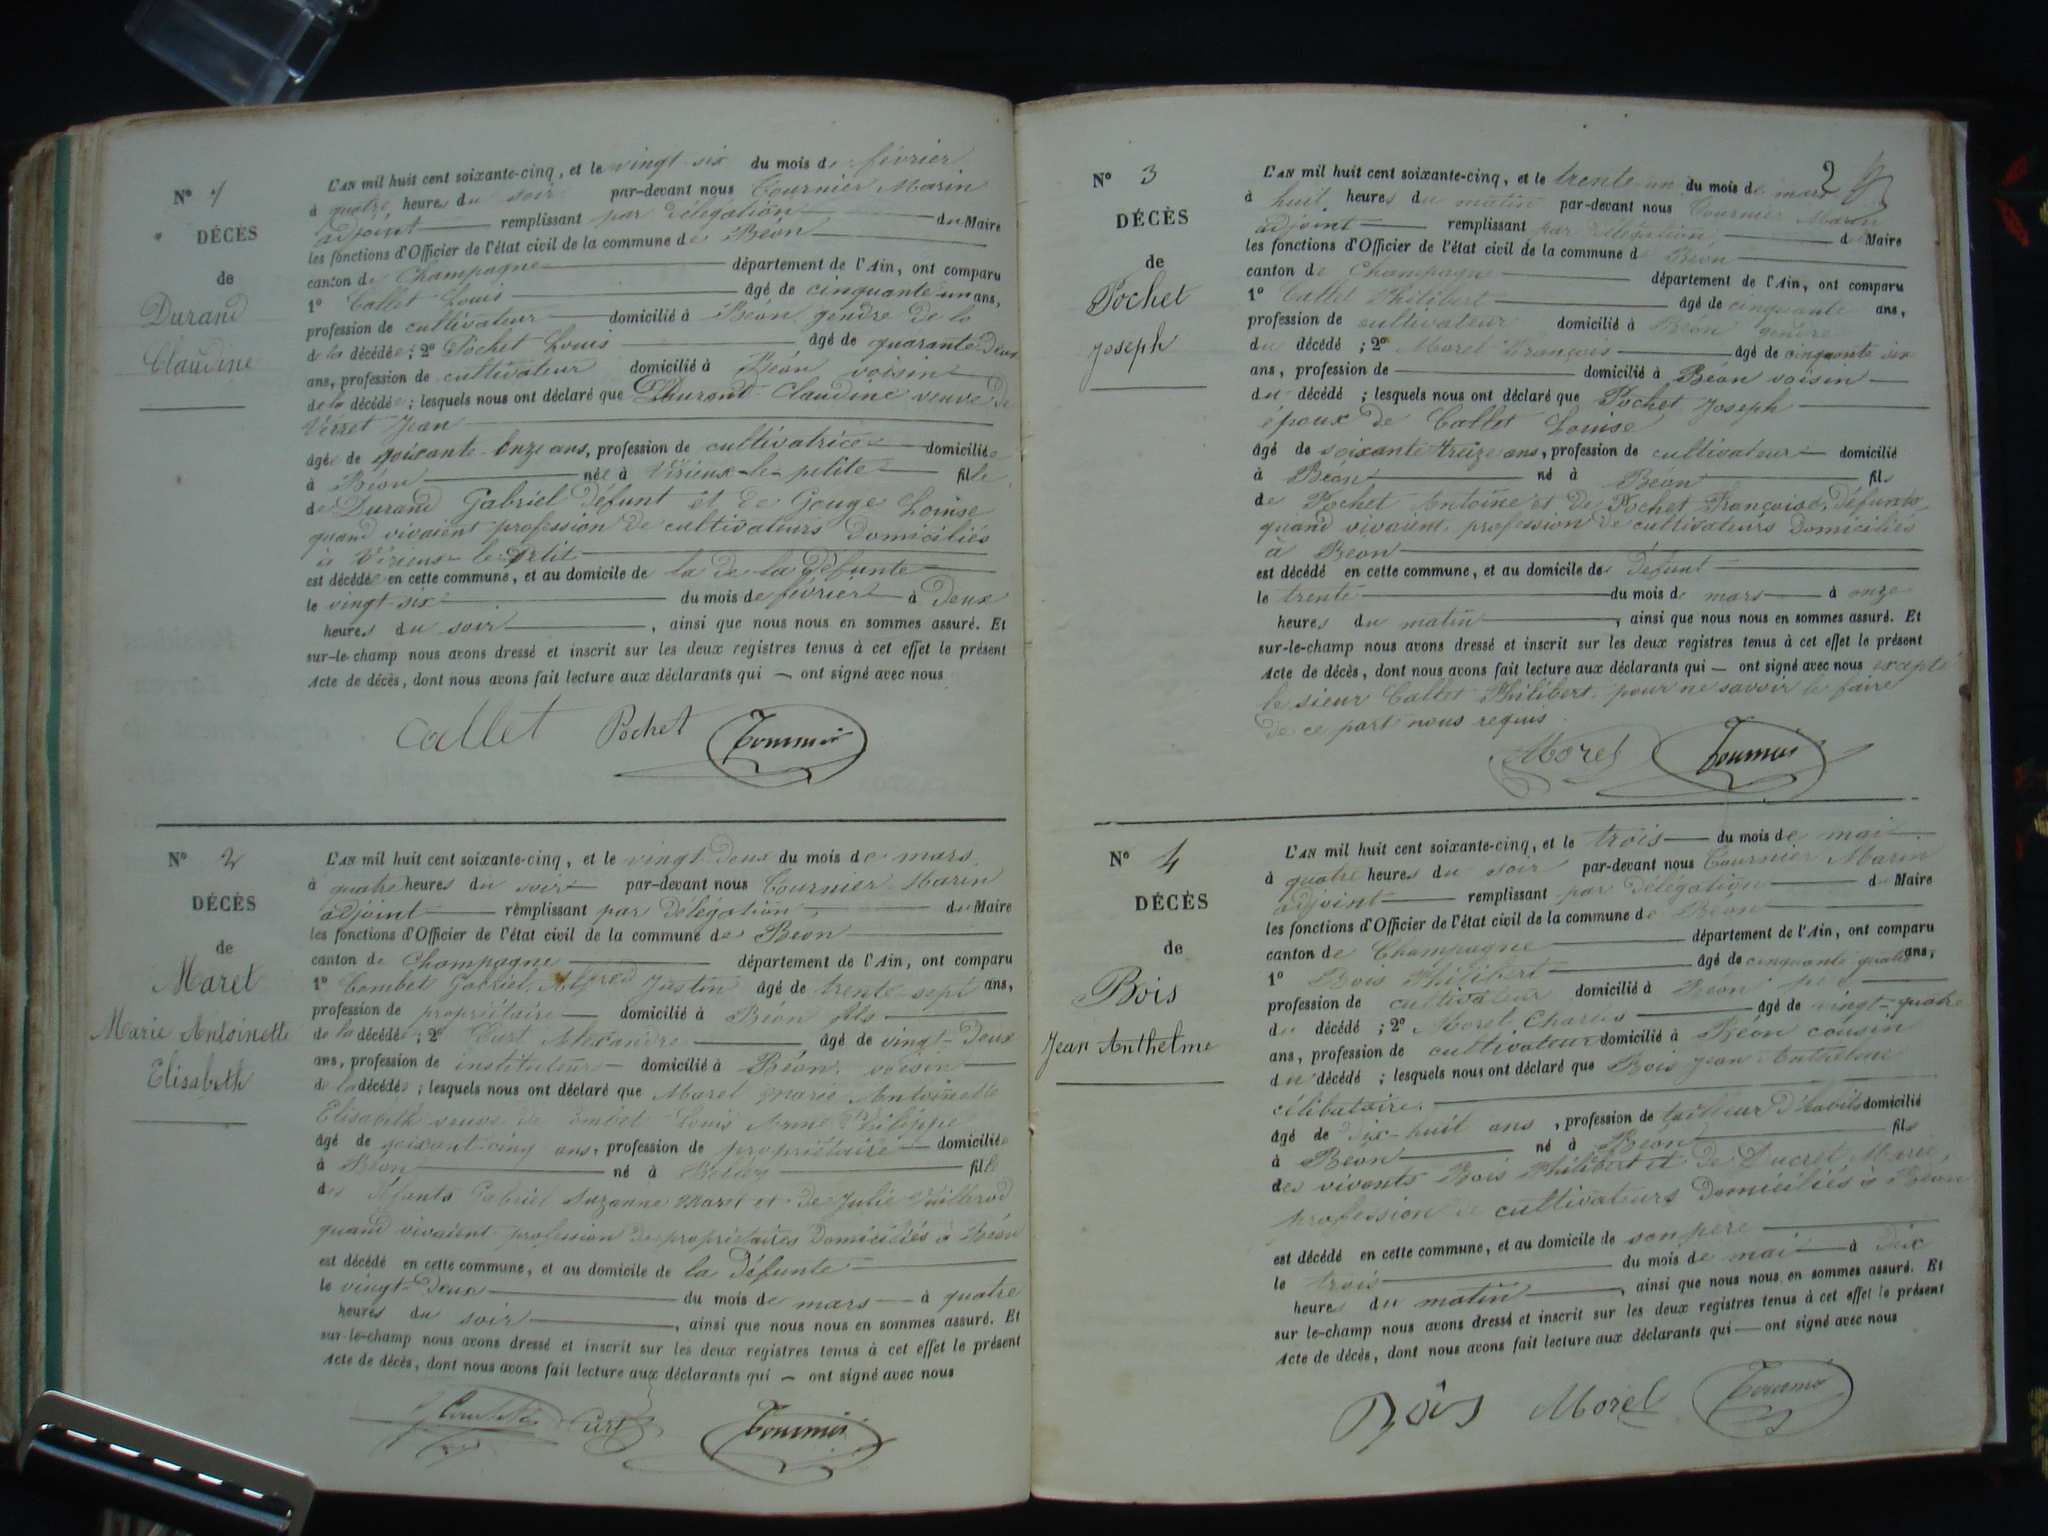 N° 1
DÉCÈS
de
Durand
Claudine
L'AN mil huit cent soixante-cinq, et le vingt six du mois de février
à quatre heures du soir par-devant nous Tournier Marin
adjoint remplissant par délégation du Maire
les fonctions d'Officier de l'état civil de la commune de Béon
canton de Champagne département de l'Ain, ont comparu
1° Callet Louis âgé de cinquante un ans,
profession de cultivateur domicilié à Béon gendre de la
de la décédée ; 2° Pochet Louis âgé de quarante deux
ans, profession de cultivateur domicilié à Béon voisin
de la décédée ; lesquels nous ont déclaré que Durand Claudine veuve de
Verret Jean
âgée de soixante-onze ans, profession de cultivatrice domiciliée
à Béon née à Virieux-le-petit fille
de Durand Gabriel défunt et de Gouge Louise
quand vivaient profession de cultivateurs domiciliés
à Virieux-le-petit
est décédée en cette commune, et au domicile de la de la défunte
le vingt six du mois de février à deux
heures du soir, ainsi que nous nous en sommes assuré. Et
sur-le-champ nous avons dressé et inscrit sur les deux registres tenus à cet effet le présent
Acte de décès, dont nous avons fait lecture aux déclarants qui — ont signé avec nous
Callet Pochet Tournier
N° 2
DÉCÈS
de
Maret
Marie Antoinette
Elisabeth
L'AN mil huit cent soixante-cinq, et le vingt deux du mois de mars
à quatre heures du soir par-devant nous Tournier Marin
adjoint remplissant par délégation du Maire
les fonctions d'Officier de l'état civil de la commune de Béon
canton de Champagne département de l'Ain, ont comparu
1° Combet Gabriel, Alfred Justin âgé de trente-sept ans,
profession de propriétaire domicilié à Béon fils
de la décédée ; 2° Curt Alexandre âgé de vingt-deux
ans, profession de instituteur domicilié à Béon, voisin
de la décédée ; lesquels nous ont déclaré que Maret Marie Antoinette
Elisabeth veuve de Combet Louis Philippe
âgé de soixant-cinq ans, profession de propriétaire domiciliée
à Béon né à Belley fille
des défunts Gabriel Suzanne Maret et de Julie
quand vivaient profession de propriétaires domiciliés à Béon
est décédé en cette commune, et au domicile de la défunte
le vingt-deux du mois de mars à quatre
heures du soir, ainsi que nous nous en sommes assuré. Et
sur-le-champ nous avons dressé et inscrit sur les deux registres tenus à cet effet le présent
Acte de décès, dont nous avons fait lecture aux déclarants qui — ont signé avec nous
Curt Tournier
2
N° 3
DÉCÈS
de
Pochet
Joseph
L'AN mil huit cent soixante-cinq, et le trente-un du mois de mars
à huit heures du matin par-devant nous Tournier Marin
adjoint remplissant par délégation du Maire
les fonctions d'Officier de l'état civil de la commune de Béon
canton de Champagne département de l'Ain, ont comparu
1° Callet Philibert âgé de cinquante ans,
profession de cultivateur domicilié à Béon gendre
du décédé ; 2° Morel François âgé de cinquante six
ans, profession de domicilié à Béon voisin
du décédé ; lesquels nous ont déclaré que Pochet Joseph
époux de Callet Louise
âgé de soixante treize ans, profession de cultivateur domicilié
à Béon né à Béon fils
de Pochet Antoine et de Pochet Françoise, défunts,
quand vivaient, profession de cultivateurs domiciliés
à Béon
est décédé en cette commune, et au domicile de défunt
le trente du mois de mars à onze
heures du matin, ainsi que nous nous en sommes assuré. Et
sur-le-champ nous avons dressé et inscrit sur les deux registres tenus à cet effet le présent
Acte de décès, dont nous avons fait lecture aux déclarants qui — ont signé avec nous excepté
le sieur Callet Philibert, pour ne savoir le faire
de ce part nous requis
Morel Tournier
N° 4
DÉCÈS
de
Bois
Jean Anthelme
L'AN mil huit cent soixante-cinq, et le trois du mois de mai
à quatre heures du soir par-devant nous Tournier Marin
adjoint remplissant par délégation du Maire
les fonctions d'Officier de l'état civil de la commune de Béon
canton de Champagne département de l'Ain, ont comparu
1° Bois Philibert âgé de cinquante quatre ans,
profession de cultivateur domicilié à Béon père
du décédé ; 2° Morel Charles âgé de vingt-quatre
ans, profession de cultivateur domicilié à Béon cousin
du décédé ; lesquels nous ont déclaré que Bois Jean Anthelme
célibataire.
âgé de dix-huit ans, profession de tailleur d'habits domicilié
à Béon né à Béon fils
des vivants Bois Philibert et de Ducret Marie,
profession de cultivateurs domiciliés à Béon
est décédé en cette commune, et au domicile de son père
le trois du mois de mai à dix
heures du matin, ainsi que nous nous en sommes assuré. Et
sur le-champ nous avons dressé et inscrit sur les deux registres tenus à cet effet le présent
Acte de décès, dont nous avons fait lecture aux déclarants qui — ont signé avec nous
Bois Morel Tournier